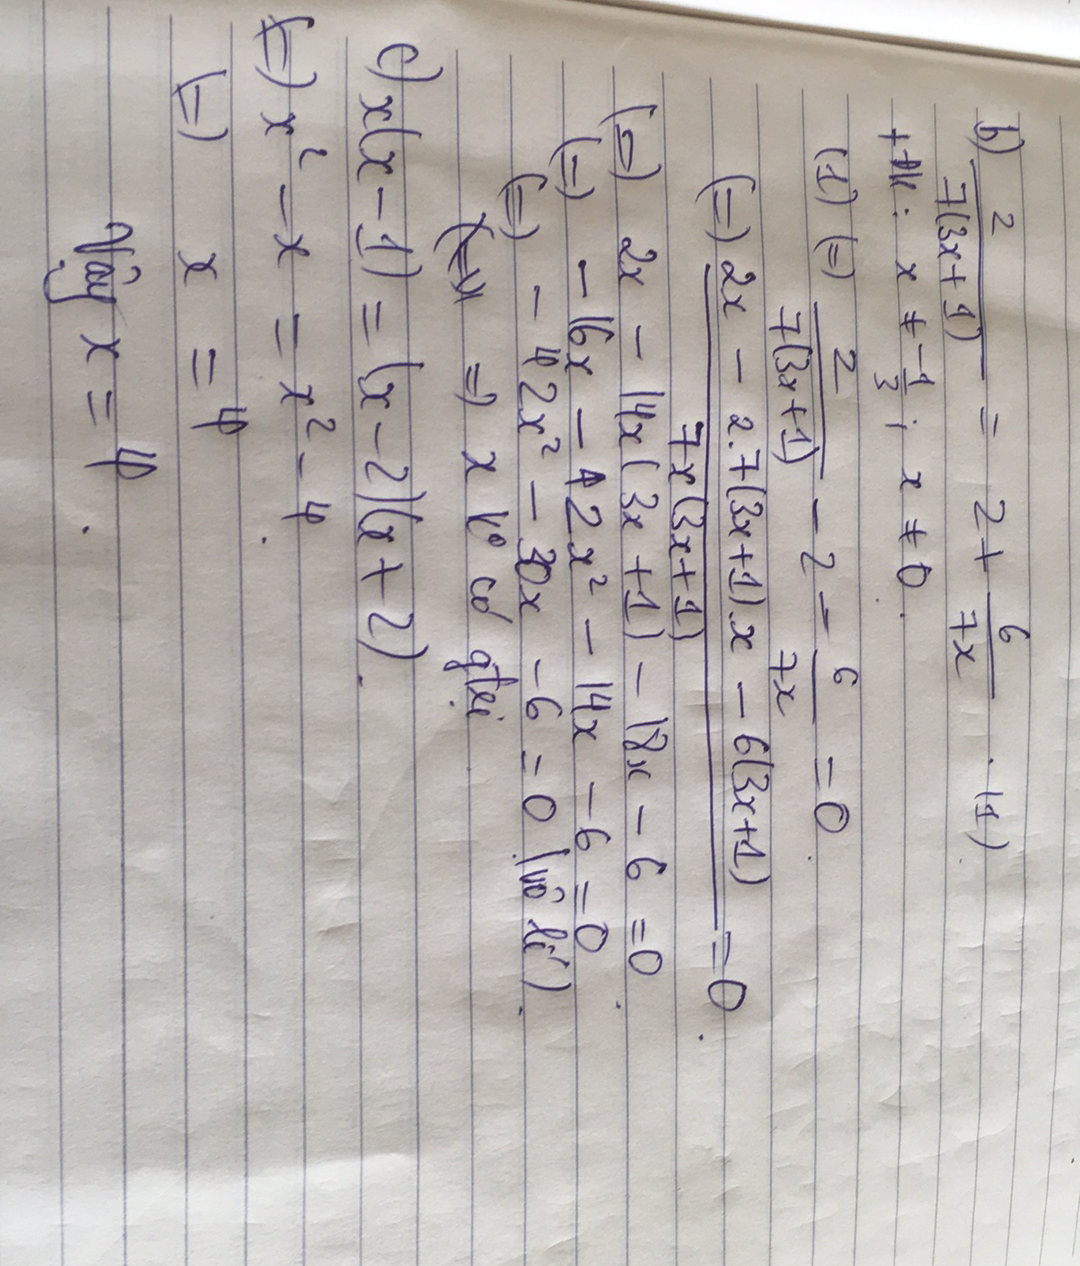 b) 2/7(3x+1) = 2 + 6/7x . (1)
+ĐK: x ≠ -1/3 ; x ≠ 0.
(1) (=) 2/7(3x+1) - 2 - 6/7x = 0
(=) 2x - 2.7(3x+1).x - 6(3x+1) / 7x(3x+1) = 0.
(=) 2x - 14x(3x+1) - 18x - 6 = 0
(=) -16x - 42x² - 14x - 6 = 0
(=) -42x² - 30x - 6 = 0 (vô lí).
=) x k° có gtri
c) x(x-1) = (x-2)(x+2).
(=) x² - x = x² - 4.
(=) x = 4
Vậy x = 4.